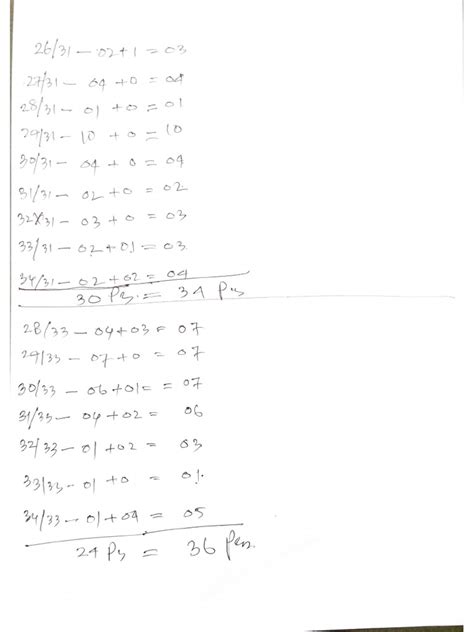 26/31 - 02+1 = 03
27/31 - 04 +0 = 04
28/31 - 01 +0 = 01
29/31 - 10 +0 = 10
30/31 - 04 +0 = 04
31/31 - 02 +0 = 02
32/31 - 03 +0 = 03
33/31 - 02+01 = 03
34/31 - 02+02 = 04
30 Ps = 34 Pcs
28/33 - 04+03 = 07
29/33 - 07+0 = 07
30/33 - 06+01 = = 07
31/33 - 04+02 = 06
32/33 - 01+02 = 03
33/33 - 01+0 = 01
34/33 - 01+04 = 05
24 Ps = 36 Pcs.